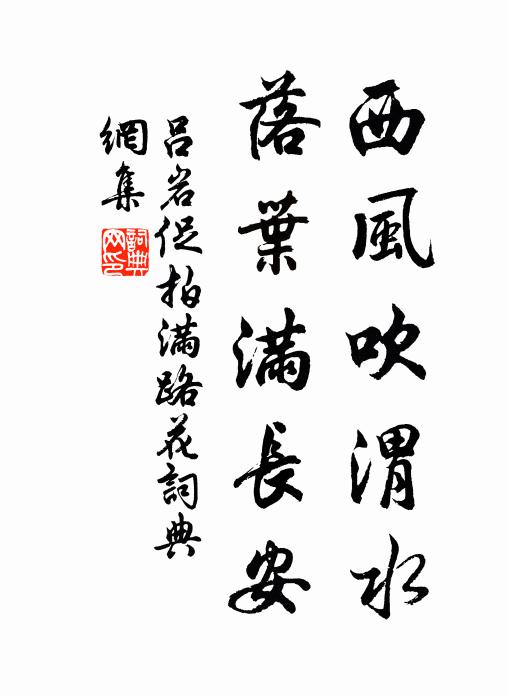 西風吹渭水
落葉滿長安
呂岩促拍滿路花詞典
網集
詞典網印